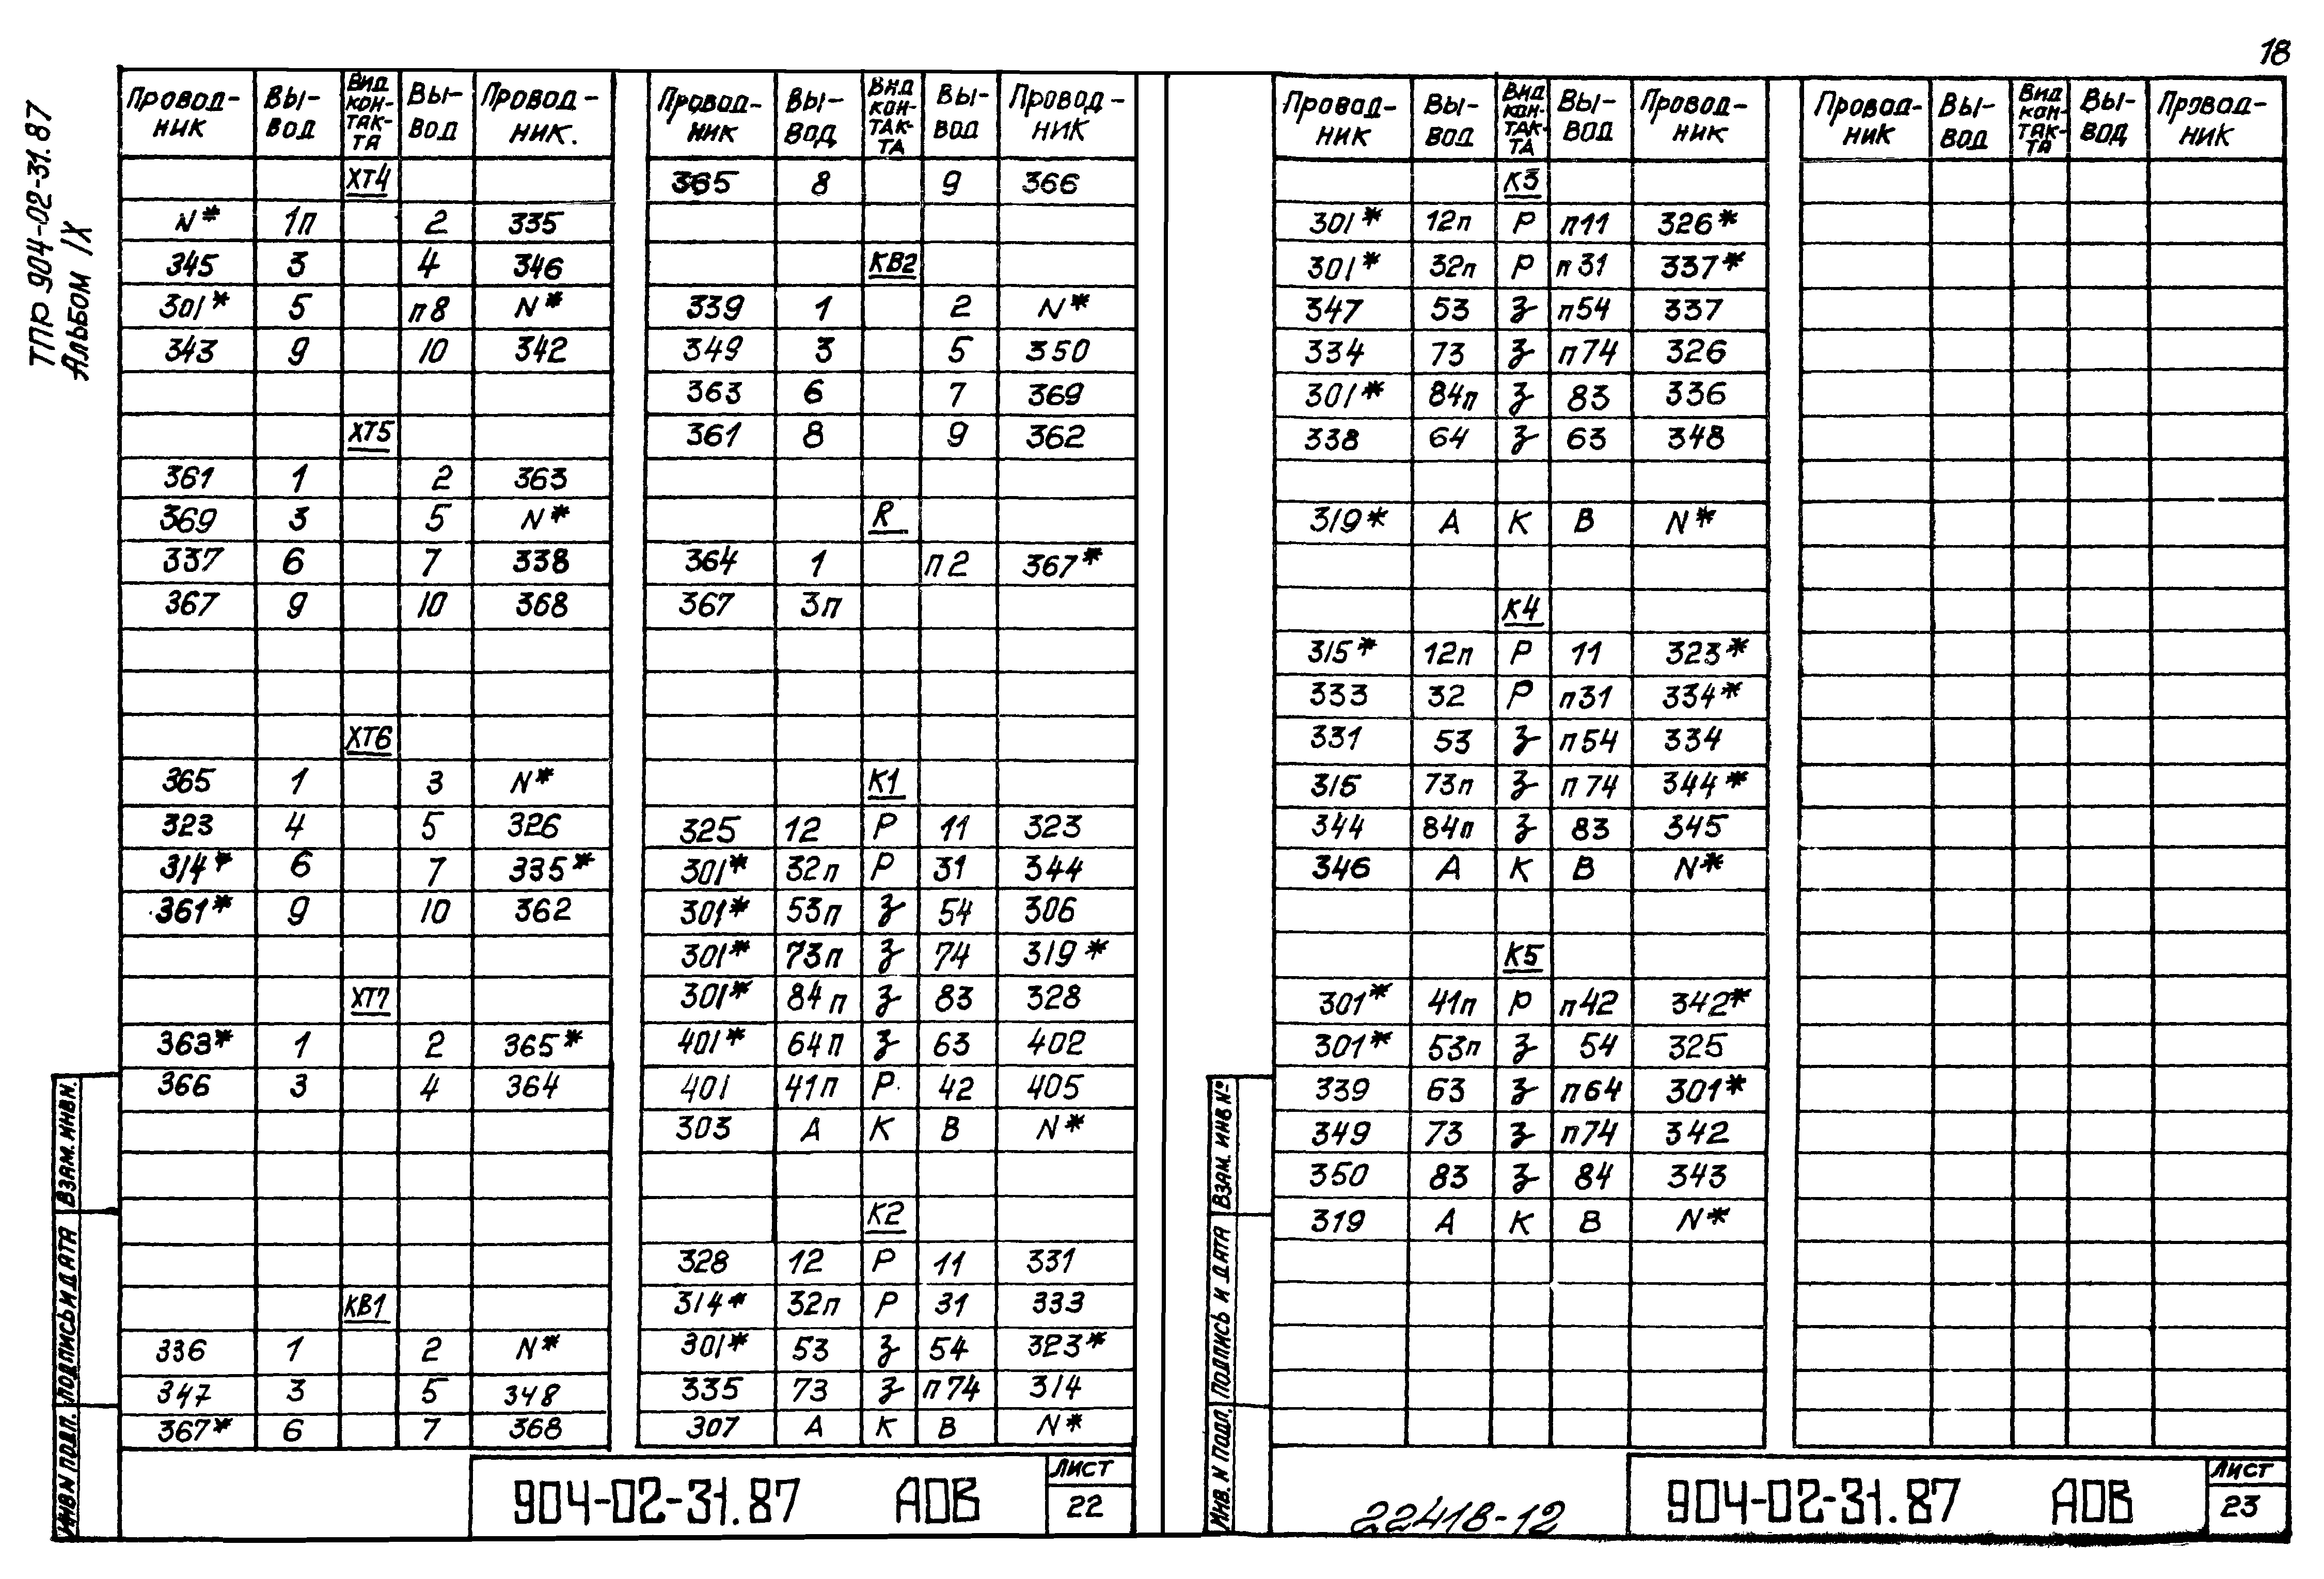 18
ТПР 904-02-31.87
Альбом IX
Провод-ник Вы-вод Вид кон-так-та Вы-вод Провод-ник.
ХТ4
N* 1п 2 335
345 3 4 346
301* 5 п8 N*
343 9 10 342
ХТ5
361 1 2 363
369 3 5 N*
337 6 7 338
367 9 10 368
ХТ6
365 1 3 N*
323 4 5 326
314* 6 7 335*
361* 9 10 362
ХТ7
363* 1 2 365*
366 3 4 364
КВ1
336 1 2 N*
347 3 5 348
367* 6 7 368
Провод-ник Вы-вод Вид кон-так-та Вы-вод Провод-ник
365 8 9 366
КВ2
339 1 2 N*
349 3 5 350
363 6 7 369
361 8 9 362
R
364 1 п2 367*
367 3п
К1
325 12 Р 11 323
301* 32п Р 31 344
301* 53п з 54 306
301* 73п з 74 319*
301* 84п з 83 328
401* 64п з 63 402
401 41п Р 42 405
303 А К В N*
К2
328 12 Р 11 331
314* 32п Р 31 333
301* 53 з 54 323*
335 73 з п74 314
307 А К В N*
904-02-31.87 АОВ
Лист
22
Инв N подл. Подпись и дата Взам. инв N.
Провод-ник Вы-вод Вид кон-так-та Вы-вод Провод-ник
К3
301* 12п Р п11 326*
301* 32п Р п31 337*
347 53 з п54 337
334 73 з п74 326
301* 84п з 83 336
338 64 з 63 348
319* А К В N*
К4
315* 12п Р 11 323*
333 32 Р п31 334*
331 53 з п54 334
315 73п з п74 344*
344 84п з 83 345
346 А К В N*
К5
301* 41п Р п42 342*
301* 53п з 54 325
339 63 з п64 301*
349 73 з п74 342
350 83 з 84 343
319 А К В N*
Провод-ник Вы-вод Вид кон-так-та Вы-вод Провод-ник
22418-12
904-02-31.87 АОВ
Лист
23
Инв. N подл. Подпись и дата Взам. инв №